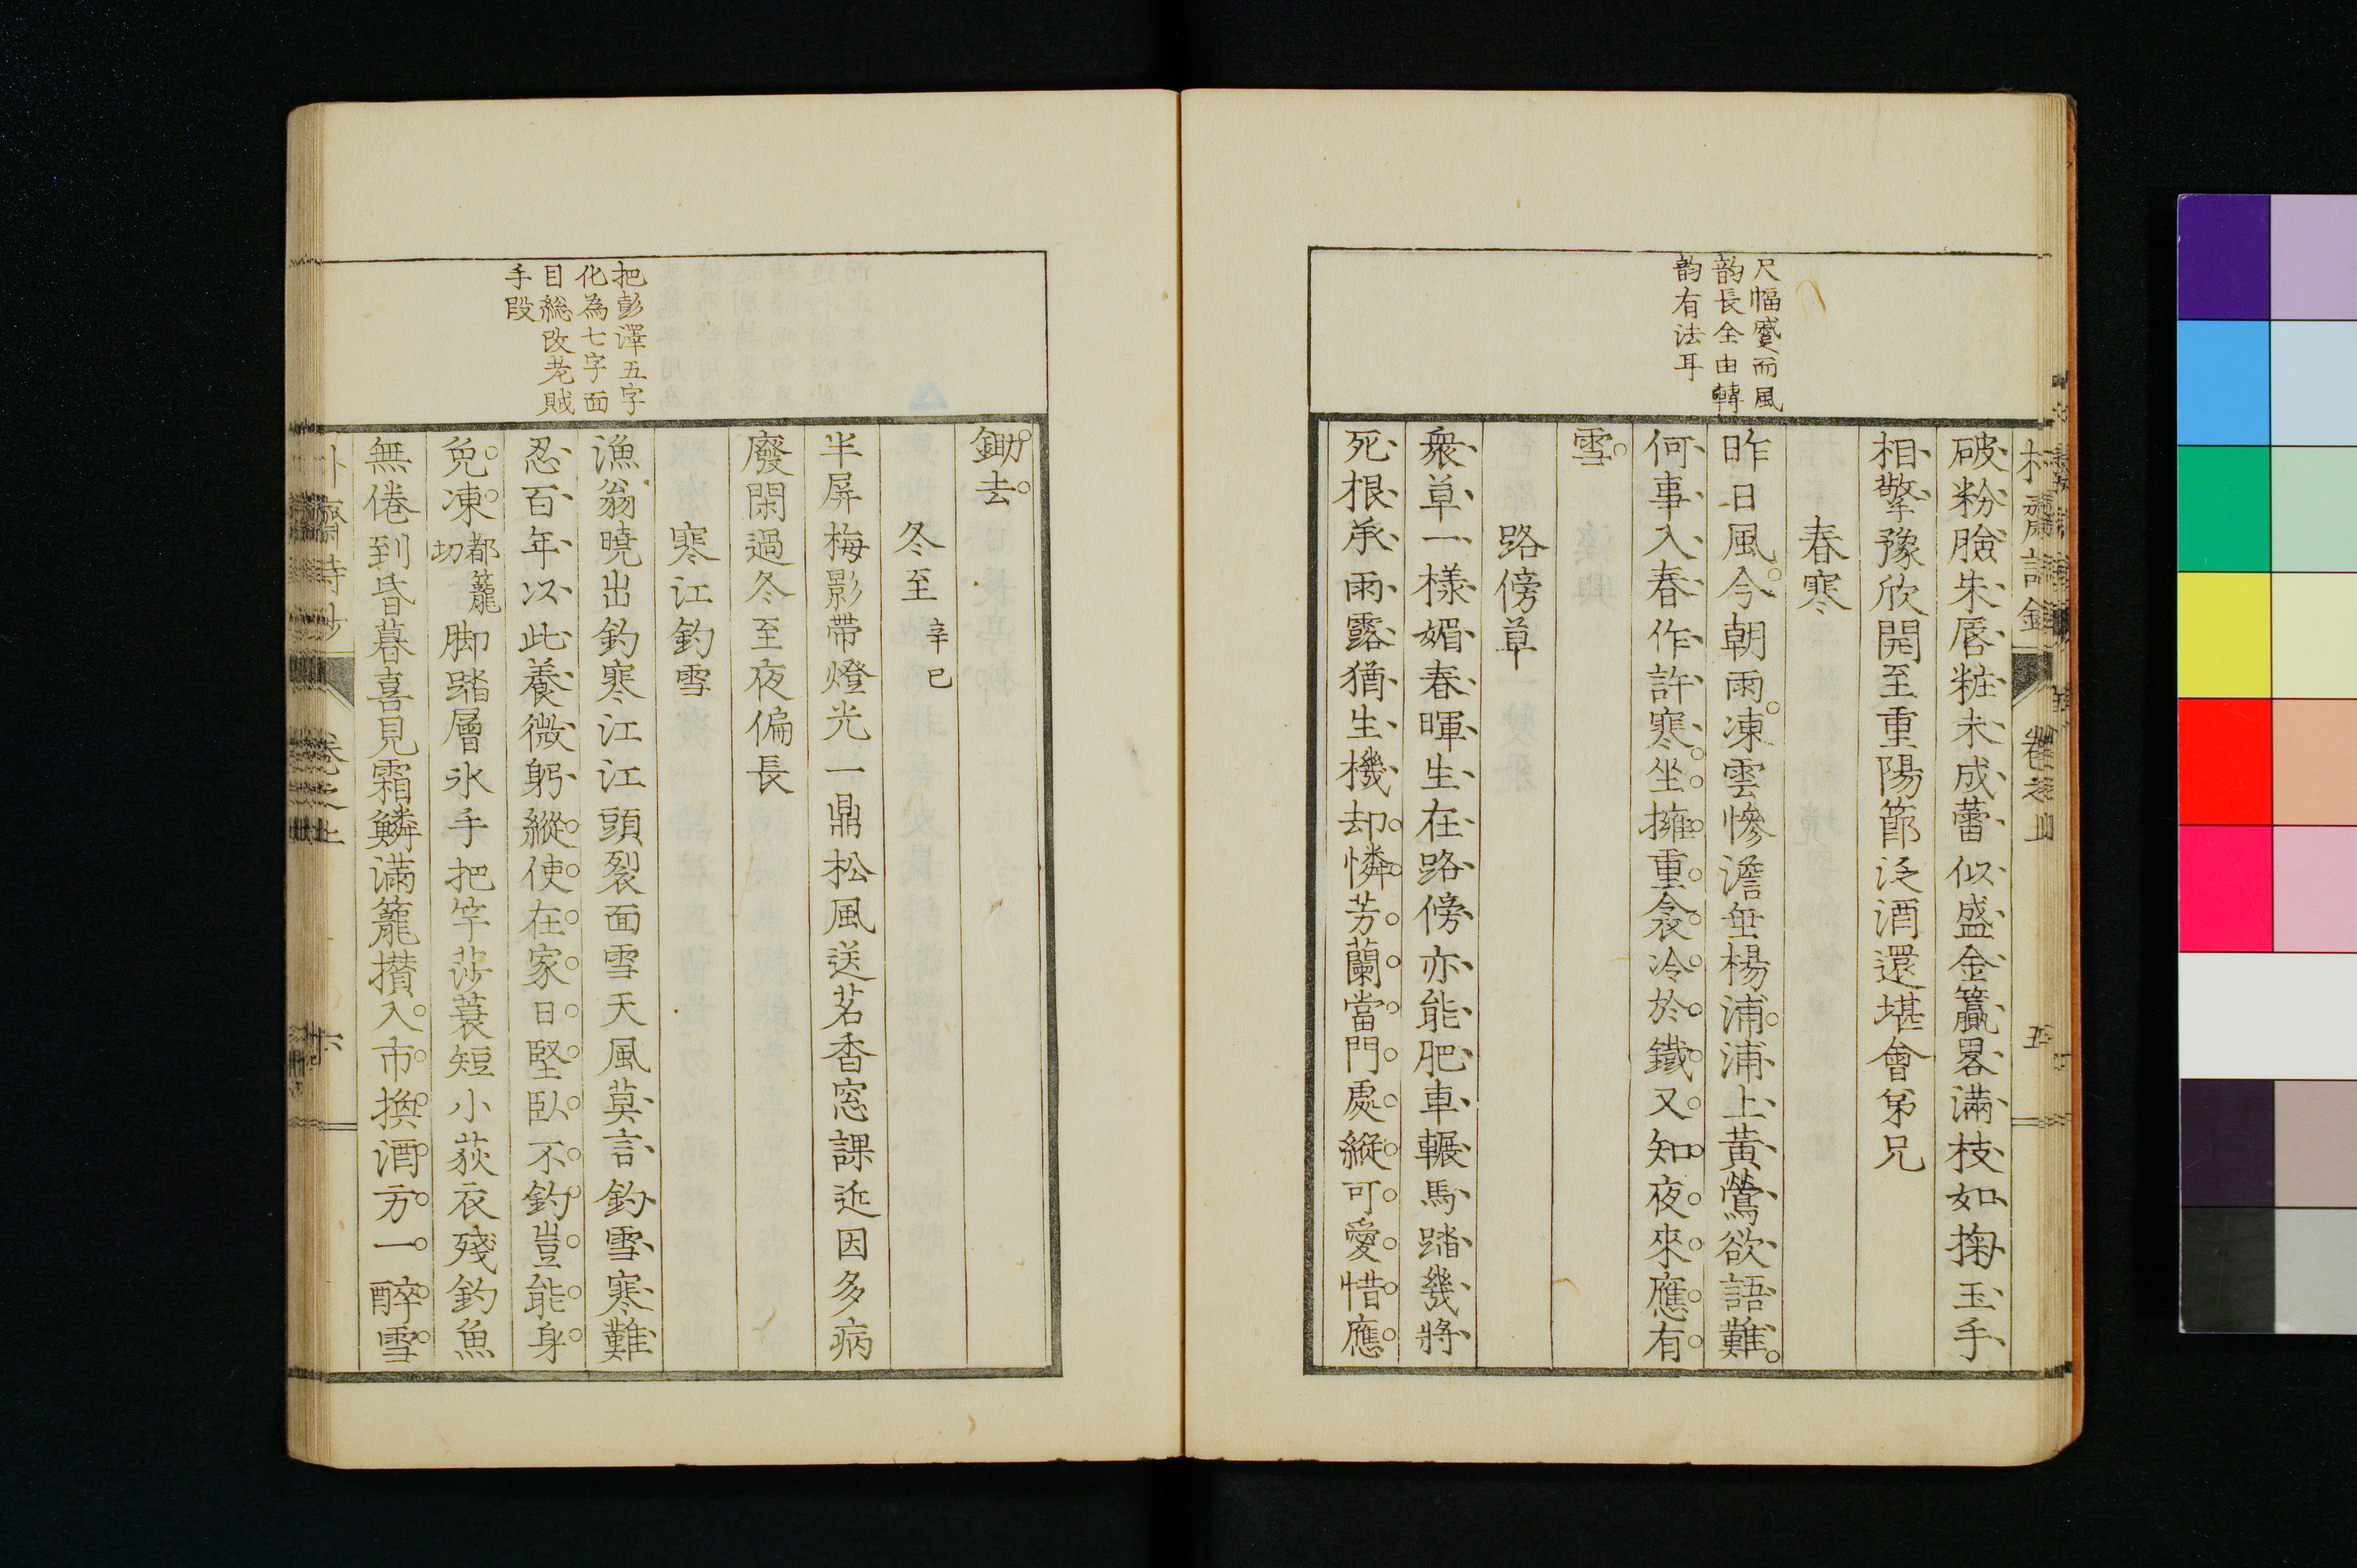 尺幅蹙而風
韵長全由轉
韵有法耳
破粉臉朱唇粧未成蕾似盛金籯畧滿枝如掬玉手
相擎豫欣開至重陽節泛酒還堪會第兄
春寒
昨日風今朝雨凍雲慘澹垂楊浦浦上黃鶯欲語難
何事入春作許寒坐擁重衾冷於鐵又知夜來應有
雪
路傍草
衆草一樣媚春暉生在路傍亦能肥車輾馬踏幾將
死根荄雨露猶生機却憐芳蘭當門處縱可愛惜應
把彭澤五字
化為七字面
目總改老賊
手段
鋤去
冬至 辛巳
半屏梅影帶燈光一鼎松風送茗香窓課近因多病
廢閑過冬至夜偏長
寒江釣雪
漁翁曉出釣寒江江頭裂面雪天風莫言釣雪寒難
忍百年以此養微躬縱使在家日堅臥不釣豈能身
免凍都籠切脚踏層氷手把竿莎蓑短小荻衣殘釣魚
無倦到昏暮喜見霜鱗滿籠攢入市換酒方一醉雪
卷之上
六